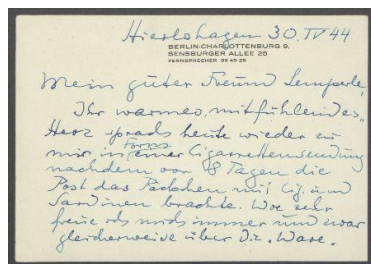 Hierlshagen 30. IV 44
BERLIN-CHARLOTTENBURG 9,
SENSBURGER ALLEE 25
FERNSPRECHER 99 45 26
Mein guter Freund Lemperle,
Ihr warmes, mitfühlendes
Herz sprach heute wieder zu
mir in Form einer Cigarettensendung
nachdem vor 8 Tagen die
Post das Päckchen mit Cig. und
Sardinen brachte. Wie sehr
freue ich mich immer und zwar
gleicherweise über Die. Ware.